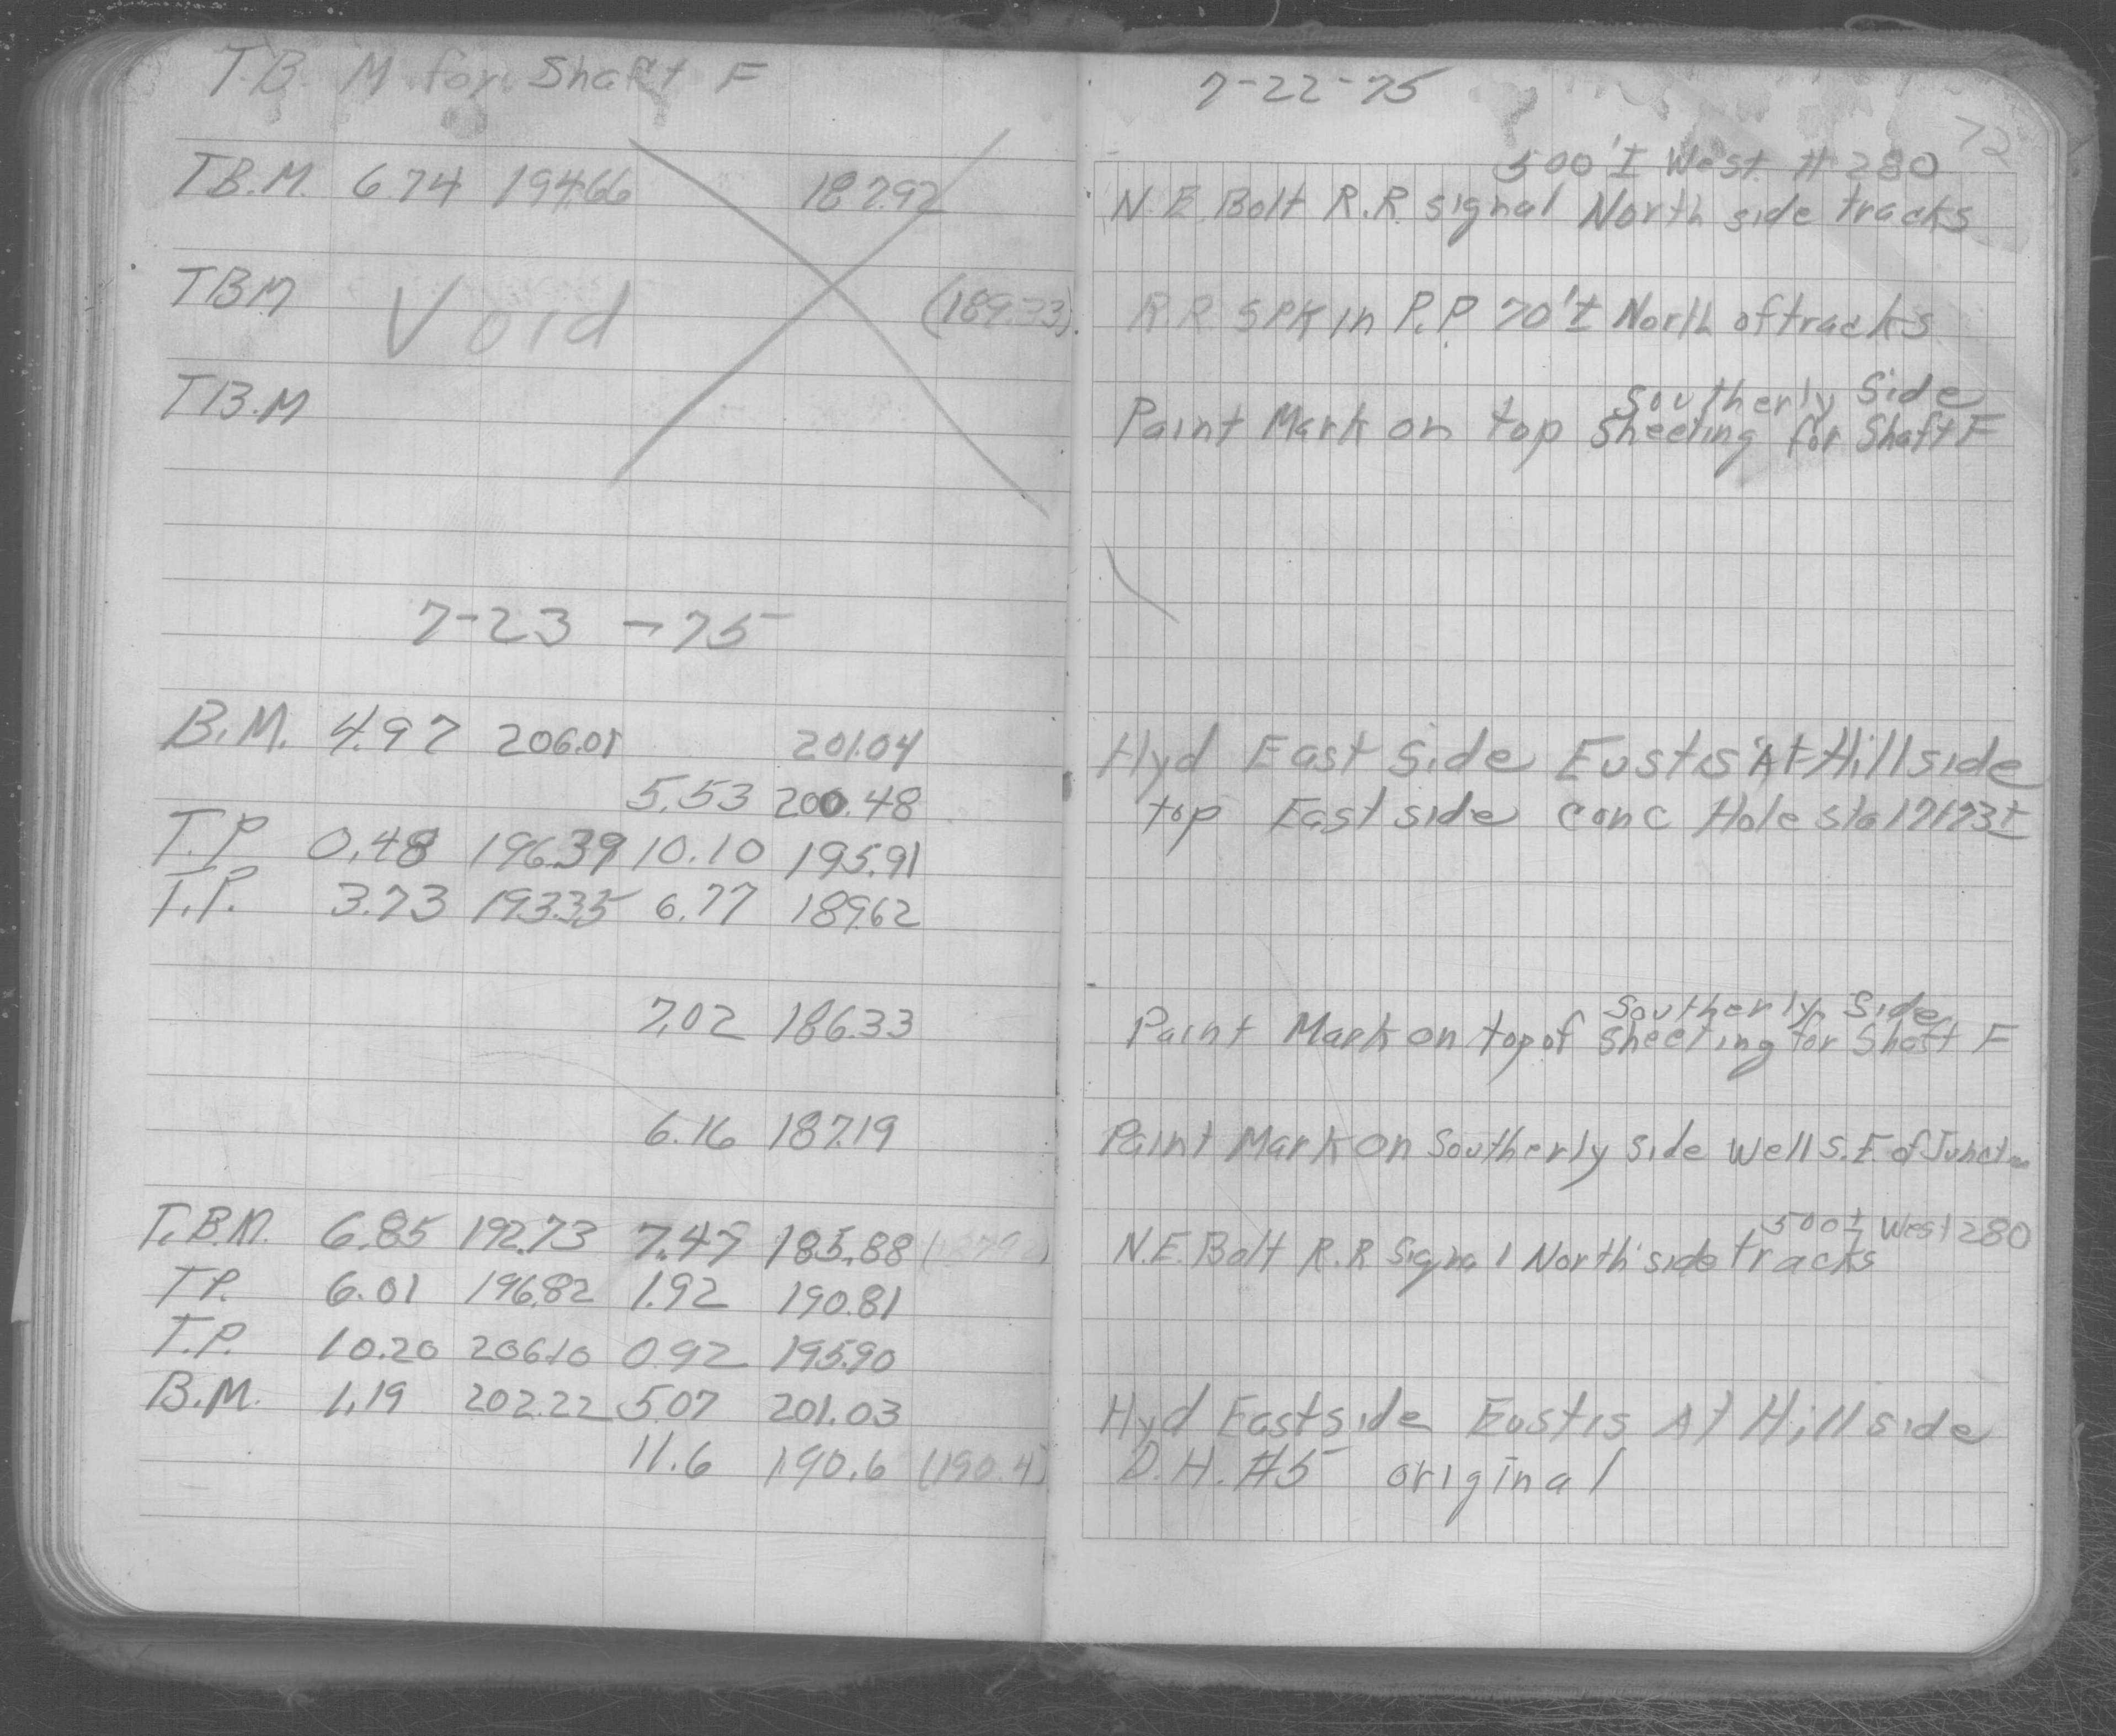 T.B. M for Shaft F
T.B.M. 6.74 194.66 187.92
TBM Void (189.33)
T.B.M
7-23-75
B.M. 4.97 206.01 201.04
5.53 200.48
T.P 0.48 196.39 10.10 195.91
T.P. 3.73 193.35 6.77 189.62
7.02 186.33
6.16 187.19
T.B.M. 6.85 192.73 7.47 185.88
T.P. 6.01 196.82 1.92 190.81
T.P. 10.20 206.10 0.92 195.90
B.M. 1.19 202.22 5.07 201.03
11.6 190.6 (190.4)
7-22-75
72
500'± West #280
N.E. Bolt R.R. signal North side tracks
R.R. SPK in P.P. 70'± North of tracks
Southerly Side
Paint Mark on top Sheeting for Shaft F
Hyd East Side Eustis At Hillside
top East side conc Hole sta 17+73±
Southerly Side
Paint Mark on top of Sheeting for Shaft F
Paint Mark on Southerly Side Well S.E. of
500± West 280
N.E. Bolt R.R Signal North side tracks
Hyd East side Eustis At Hillside
D.H. #5 original